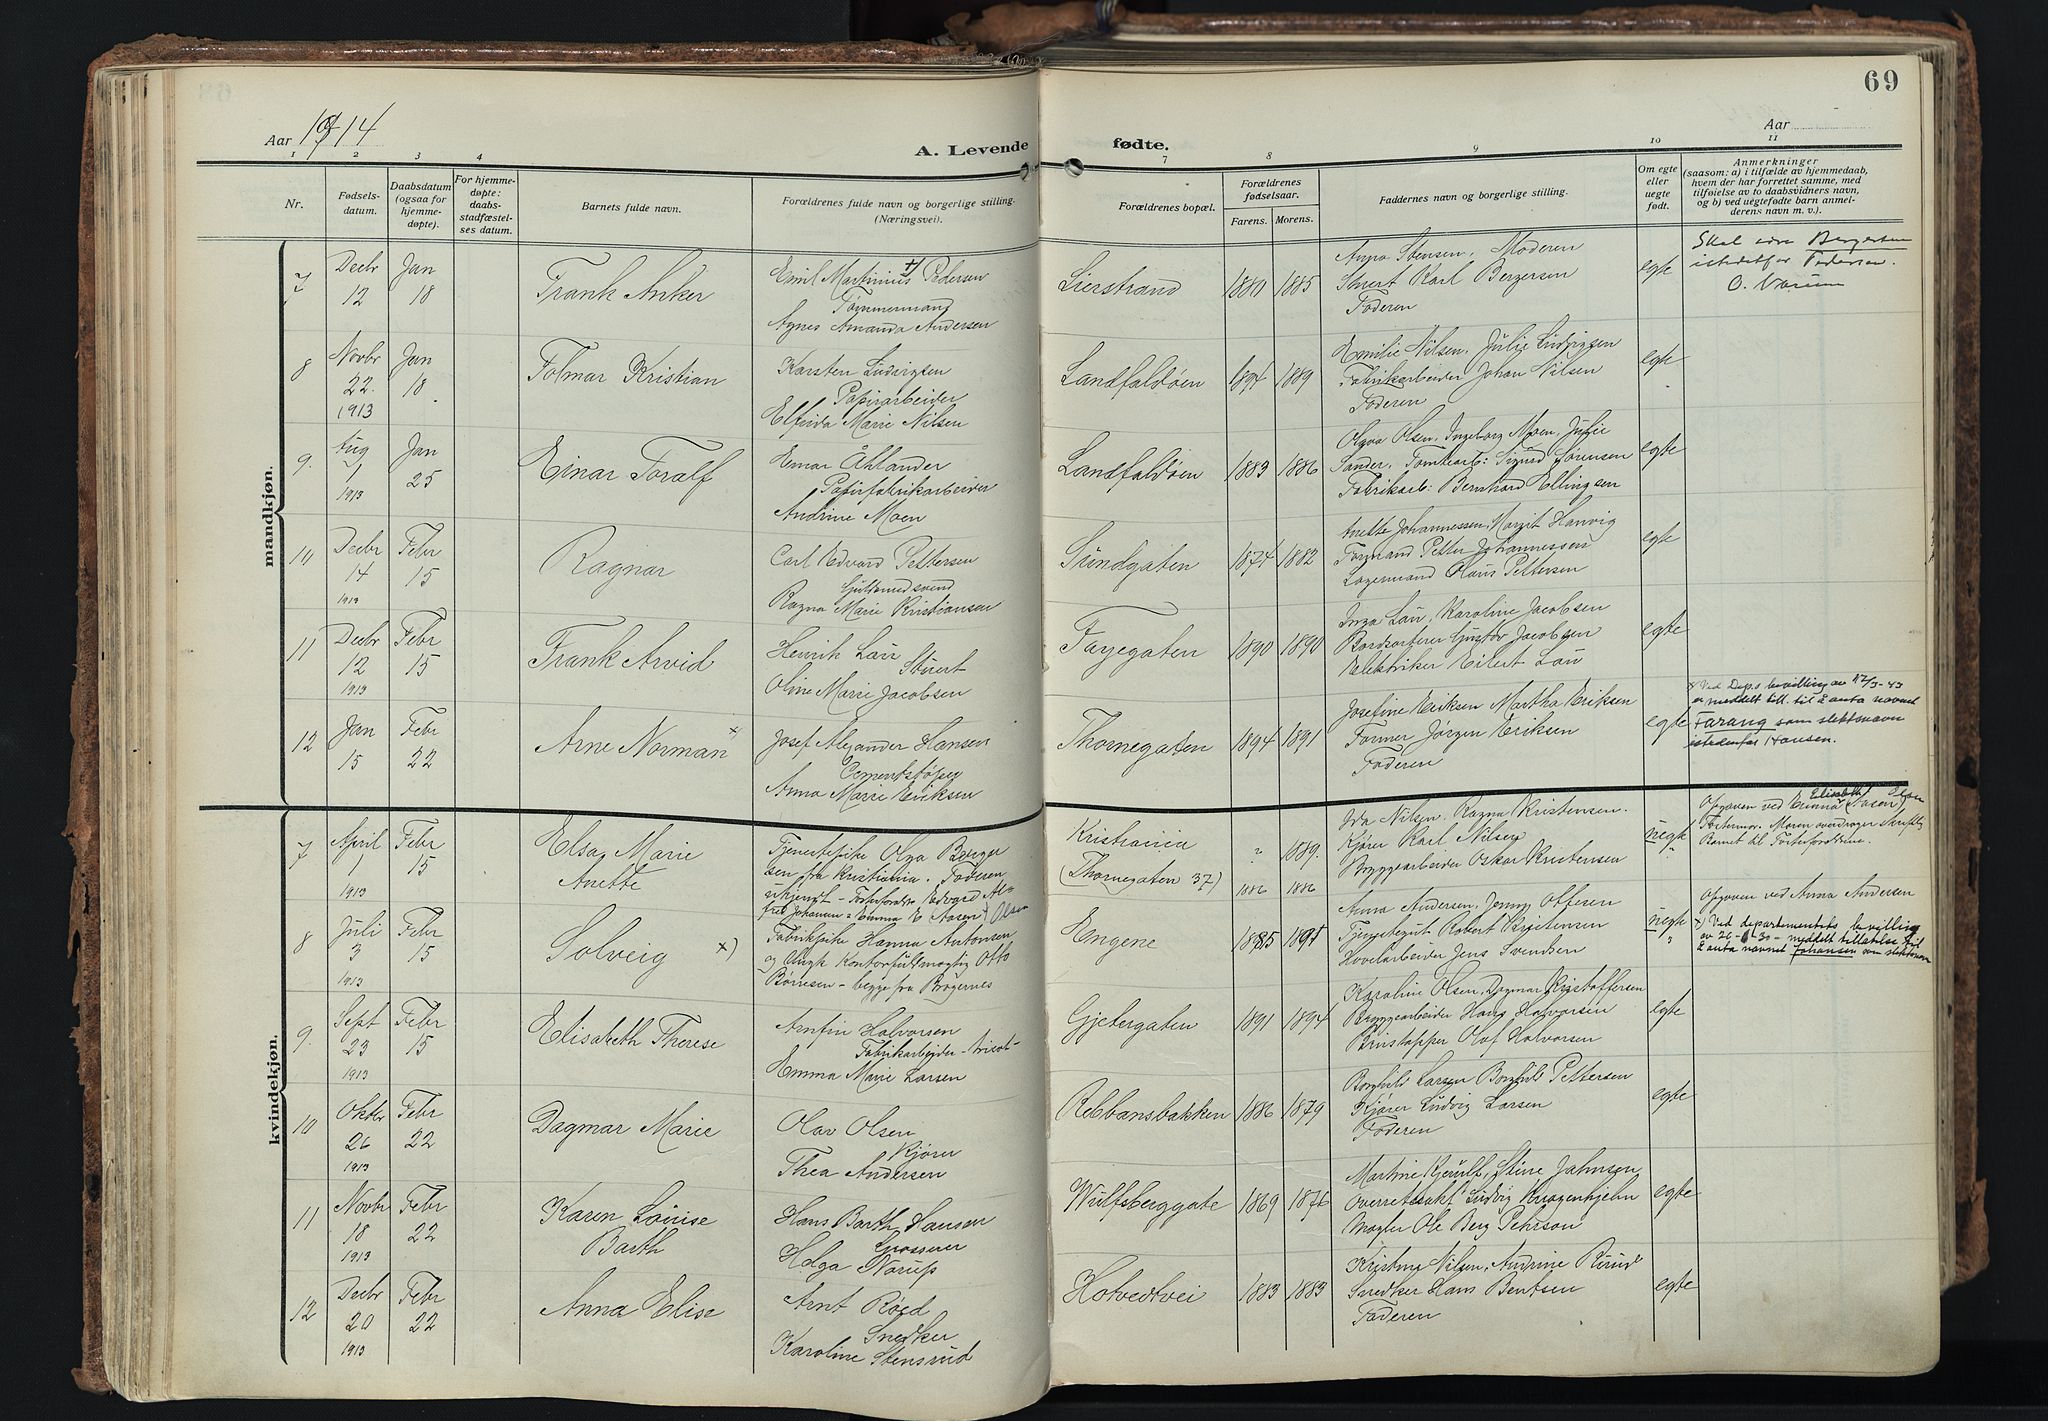 69
Aar 1914
A. Levende fødte.
Aar
1 2 3 4 7 8 9 10 11
Nr.
Fødsels-
datum.
Daabsdatum
(ogsaa for
hjemme-
døpte).
For hjemme-
døpte:
daabs-
stadfæstel-
ses datum.
Barnets fulde navn.
Forældrenes fulde navn og borgerlige stilling.
(Næringsvei).
Forældrenes bopæl.
Forældrenes
fødselsaar.
Farens. Morens.
Faddernes navn og borgerlige stilling.
Om egte
eller
uegte
født.
Anmerkninger
(saasom: a) i tilfælde av hjemmedaab,
hvem der har forrettet samme, med
tilføielse av to daabsvidners navn,
og b) ved uegtefødte barn anmel-
derens navn m. v.).
mandkjøn.
7
Decbr
12
Jan
18
Frank Anker
Emil Martinius +) Pedersen
Tømmermand
Agnes Amanda Andersen
Lierstrand
1880 1885
Anna Stensen, Moderen
Stuert Karl Bergersen
Faderen
egte
Skal være Bergersen
istedetfor Pedersen.
O. Norum
8
Novbr
22
1913
Jan
18
Folmar Kristian
Karsten Ludvigsen
Papirarbeider
Elfrida Marie Nilsen
Landfaldøen
1894 1889
Emilie Nilsen, Julie Ludvigsen
Fabrikarbeider Johan Nilsen
Faderen
egte
9.
Aug
1
1913
Jan
25
Einar Toralf
Einar Åhlander
Papirfabrikarbeider
Andrine Moen
Landfaldøen
1883 1886
Olga Olsen, Ingeborg Moen, Julie
Sander, Tomtearb: Sigurd Sørensen
Fabrikarb: Bernhard Ellingsen
egte
10
Decbr
14
1913
Febr
15
Ragnar
Carl Edvard Pettersen
Gjultsmedsvend
Ragna Marie Kristiansen
Sundgaten
1874 1882
Anette Johannessen, Margit Hanvig
Formand Petter Johannessen
Lagermand Olaus Pettersen
egte
11
Decbr
12
1913
Febr
15
Frank Arvid
Henrik Lau
Stuert
Oline Marie Jacobsen
Fayegaten
1890 1890
Inga Lau, Karoline Jacobsen
Bordsorterer Gustav Jacobsen
Elektriker Eilert Lau
egte
12
Jan
15
Febr
22
Arne Norman x
Josef Alexander Hansen
Cementstøper
Anna Marie Eriksen
Thornegaten
1894 1891
Josefine Eriksen Martha Eriksen
Former Jørgen Eriksen
Faderen
egte
x Ved Dep.s bevilling av 17/3-43
er meddelt till. til å anta navnet
Farang som slektsnavn
istedenfor Hansen.
kvindekjøn.
7
April
1
1913
Febr
15
Elsa Marie
Anette
Tjenestepike Olga Berger
sen fra Kristiania. Faderen
ukjendt - Fosterforældre Edvard Al-
fred Johansen & Emma E Aasen Olsen
Kristiania
(Thornegaten 37)
? 1889.
1886 1886
Ida Nilsen, Ragna Kristensen.
Kjører Karl Nilsen
Bryggearbeider Oskar Kristensen
uegte
Opgaven ved Emma Elisabeth Aasen Olsen
Fostermor. Moren overdrager skriftlig
Barnet til Fosterforældrene.
8
Juli
3
1913
Febr
15
Solveig x)
Fabrikpike Hanna Antonsen
og Ungk Kontorfuldmægtig Otto
Børresen - begge fra Bragernes
Engene
1885 1895
Anna Andersen, Jenny Ottesen
Tjenestegut Robert Kristensen
Høvelarbeider Jens Svendsen
uegte
"
Opgaven ved Anna Andersen
x) Ved departementets bevilling
av 26-6-30 - meddelt tillatelse til
å anta navnet Johansen som slektsnavn
9.
Sept
23
1913
Febr
15
Elisabeth Therese
Arnfin Halvorsen
Fabrikarbeider
Emma Marie Larsen
Gjetergaten
1891 1894
Karoline Olsen, Dagmar Kristoffersen
Bryggearbeider Hans Halvorsen
Olaf Halvorsen
egte
10
Oktbr
26
1913
Febr
22
Dagmar Marie
Olav Olsen
Kjører
Thea Andersen
Rebbansbakken
1886 1879
Borghild Larsen Borghild Pettersen
Kjører Ludvig Larsen
Faderen
egte
11
Novbr
18
1913
Febr
22
Karen Louise
Barth
Hans Barth Hansen
Grosserer
Helga Narup
Wulfsberggate
1869 1876
Martine Kjerulf, Stine Jahnsen
Overretssakf Ludvig Knagenhjelm
Mægler Ole Berg Pehrson
egte
12
Decbr
20
1913
Febr
22
Anna Elise
Arnt Røed
Snedker
Karoline Stensrud
Hotvedtvei
1883 1883
Kristine Nilsen, Andrine Ruud
Snedker Hans Bentsen
Faderen
egte